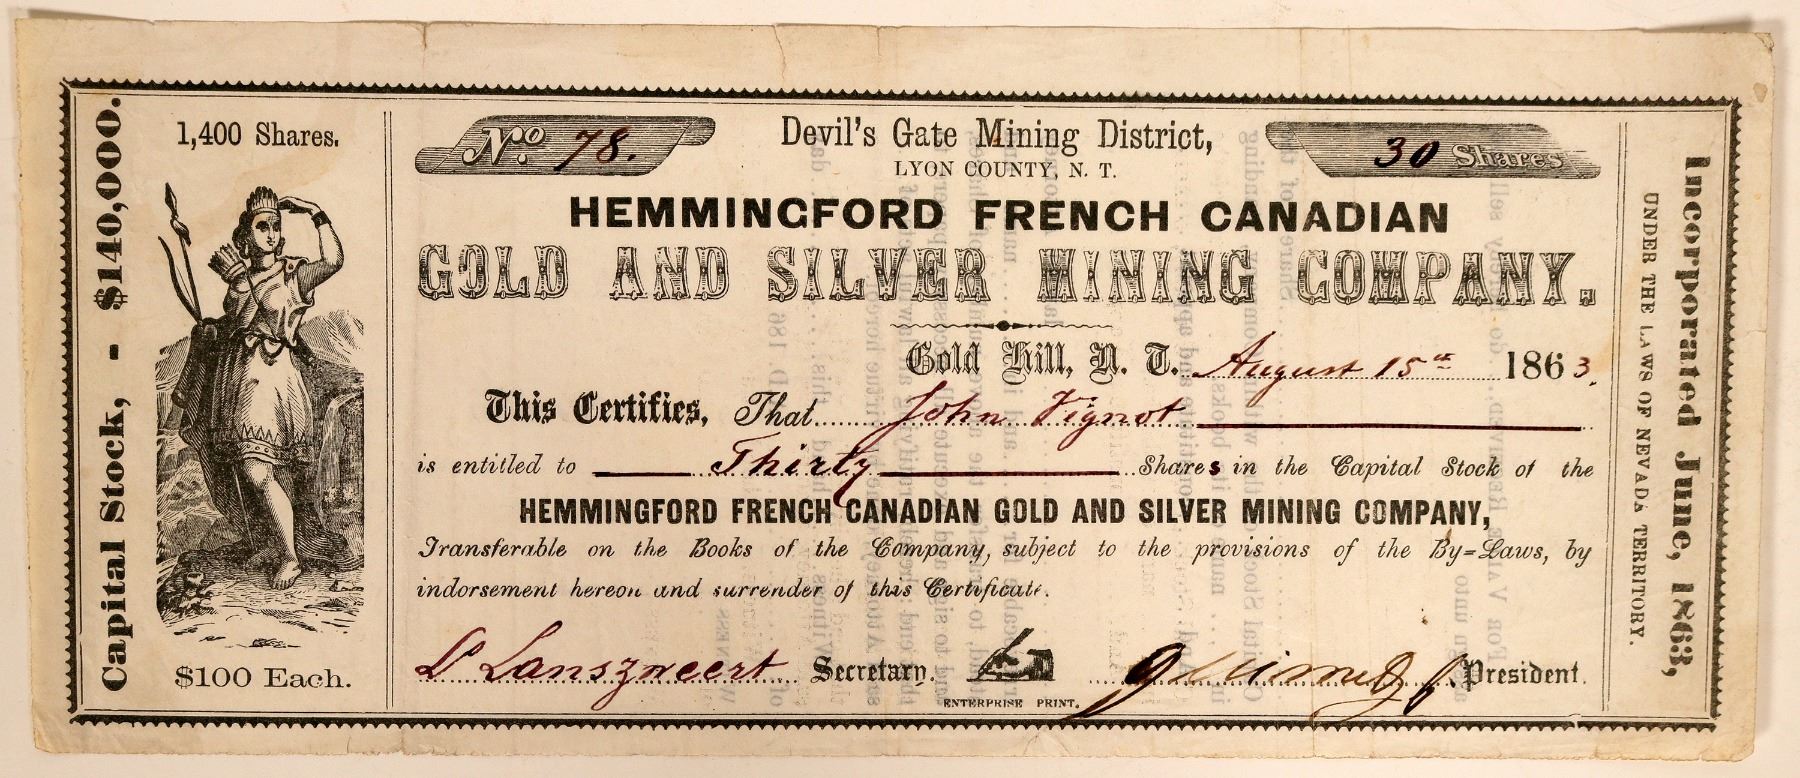 Capital Stock, - $140,000.
1,400 Shares.
$100 Each.
No. 78.
Devil's Gate Mining District,
30 Shares
LYON COUNTY, N. T.
HEMMINGFORD FRENCH CANADIAN
GOLD AND SILVER MINING COMPANY.
Gold Hill, N. T. August 15th 1863.
This Certifies, That John Vignot
is entitled to Thirty Shares in the Capital Stock of the
HEMMINGFORD FRENCH CANADIAN GOLD AND SILVER MINING COMPANY,
Transferable on the Books of the Company, subject to the provisions of the By=Laws, by
indorsement hereon and surrender of this Certificate.
L Lanszweert Secretary.
President.
ENTERPRISE PRINT.
Incorporated June, 1863,
UNDER THE LAWS OF NEVADA TERRITORY.